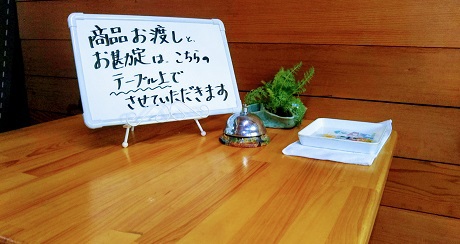 商品お渡しと、
お勘定は、こちらの
テーブル上で
させていただきます